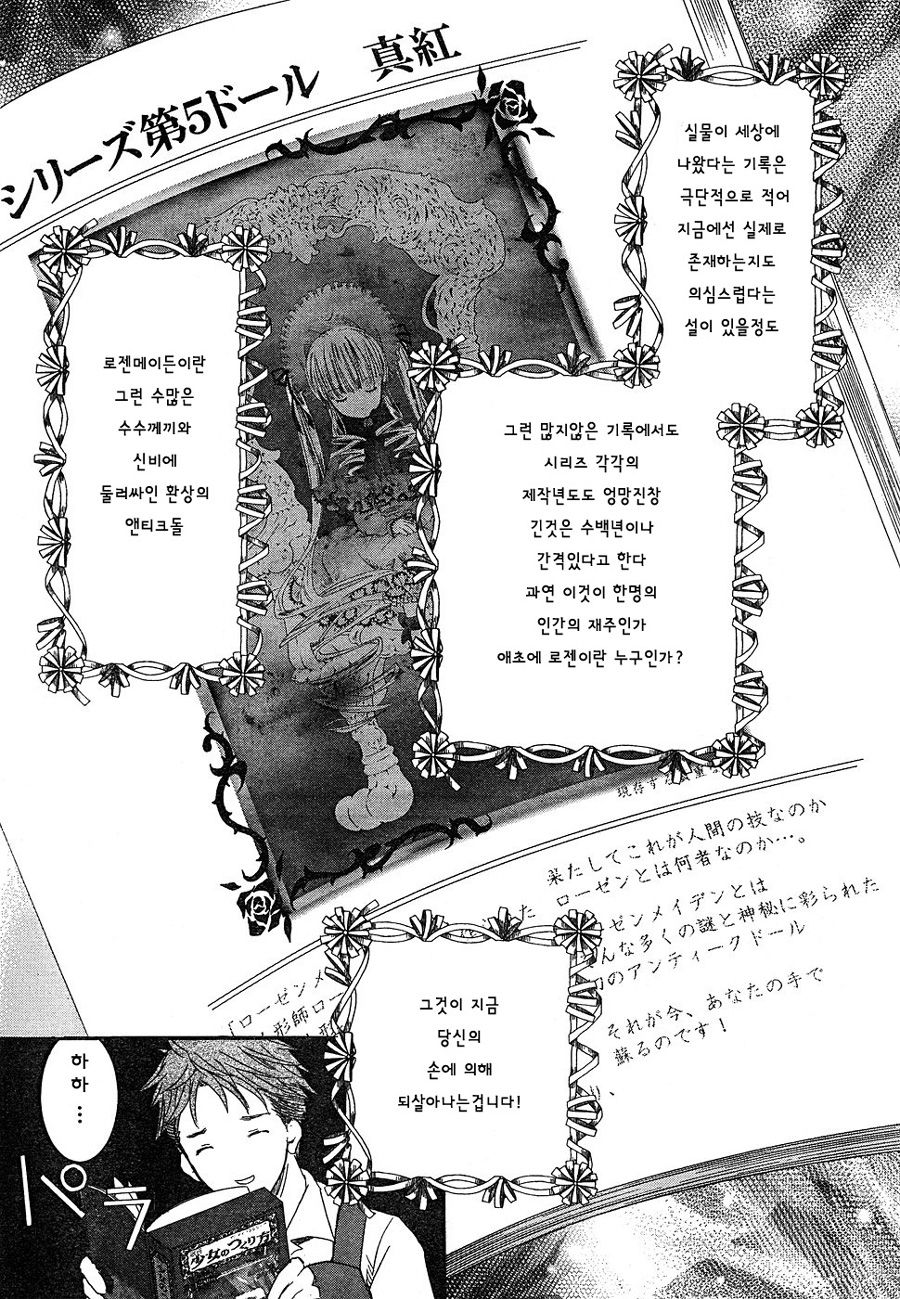 シリーズ第5ドール 真紅
실물이 세상에
나왔다는 기록은
극단적으로 적어
지금에선 실제로
존재하는지도
의심스럽다는
설이 있을정도
그런 많지않은 기록에서도
시리즈 각각의
제작년도도 엉망진창
긴것은 수백년이나
간격있다고 한다
과연 이것이 한명의
인간의 재주인가
애초에 로젠이란 누구인가?
로젠메이든이란
그런 수많은
수수께끼와
신비에
둘러싸인 환상의
앤티크돌
現存す
果たしてこれが人間の技なのか
ローゼンとは何者なのか…。
ーゼンメイデンとは
んな多くの謎と神秘に彩られた
のアンティークドール
それが今、あなたの手で
蘇るのです!
「ローゼンメ
形師ロー
그것이 지금
당신의
손에 의해
되살아나는겁니다!
하
하
…
パラ
少女のつくり方